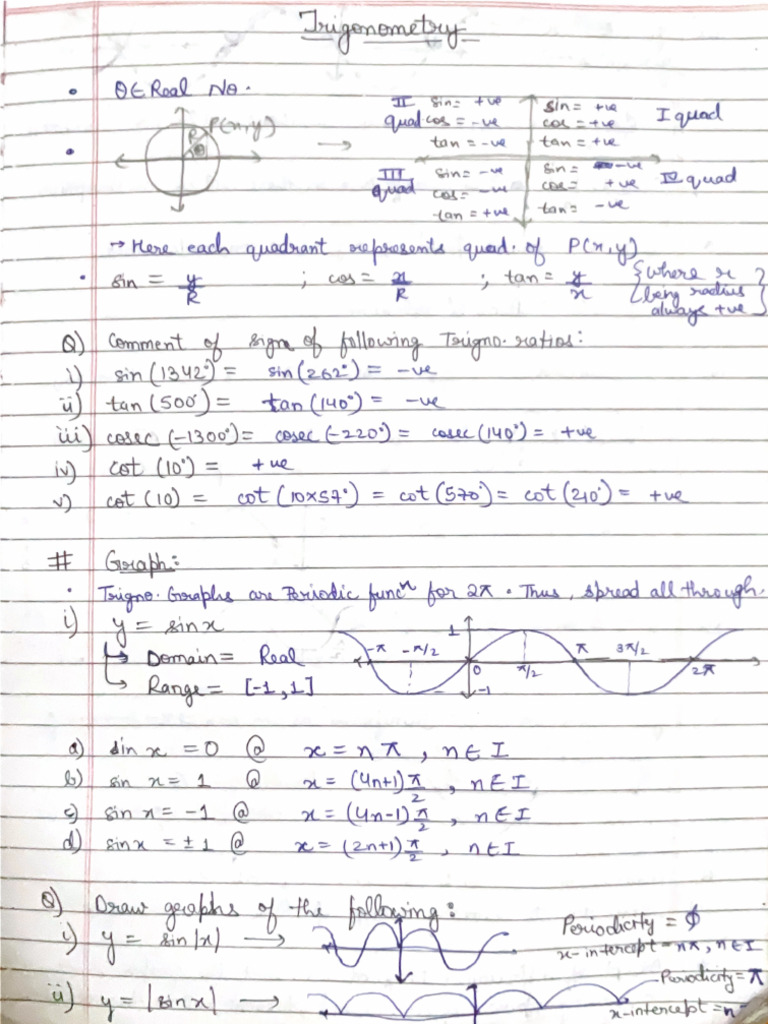 Trigonometry
• θ∈Real No.
P(x,y)
R
θ
II quad
sin = +ve
cos = -ve
tan = -ve
sin = +ve
cos = +ve
tan = +ve
I quad
III quad
sin = -ve
cos = -ve
tan = +ve
sin = -ve
cos = +ve
tan = -ve
IV quad
→ Here each quadrant represents quad. of P(x,y)
• sin = y/R ; cos = x/R ; tan = y/x {where r being radius always +ve}
Q) Comment of sign of following Trigno. ratios:
i) sin(1342°) = sin(262°) = -ve
ii) tan(500°) = tan(140°) = -ve
iii) cosec(-1300°) = cosec(-220°) = cosec(140°) = +ve
iv) cot(10°) = +ve
v) cot(10) = cot(10×57°) = cot(570°) = cot(210°) = +ve
# Graph:
• Trigno. Graphs are Periodic funcⁿ for 2π. Thus, spread all through.
i) y = sinx
↳ Domain = Real
↳ Range = [-1,1]
1
-π -π/2 0 π/2 π 3π/2 2π
-1
a) sin x = 0 @ x = nπ, n∈I
b) sin x = 1 @ x = (4n+1)π/2, n∈I
c) sin x = -1 @ x = (4n-1)π/2, n∈I
d) sinx = ±1 @ x = (2n+1)π/2, n∈I
Q) Draw graphs of the following:
i) y = sin|x| →
Periodicity = ϕ
x-intercept = nπ, n∈I
ii) y = |sinx| →
Periodicity = π
x-intercept = n